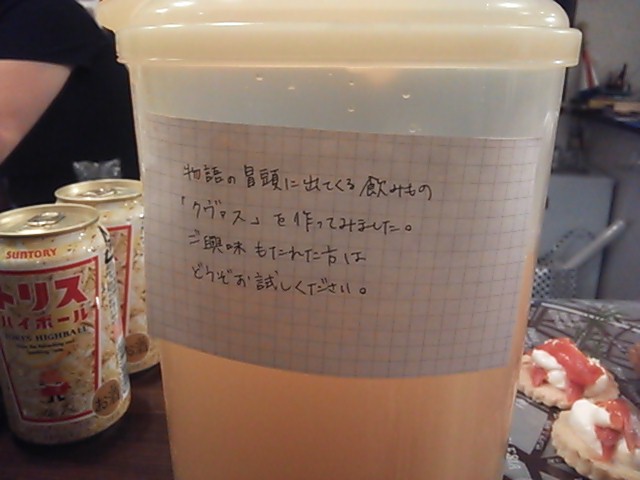 物語の冒頭に出てくる飲みもの
「クヴァス」を作ってみました。
ご興味もたれた方は
どうぞお試しください。
SUNTORY
トリス
ハイボール
TORYS HIGHBALL
お酒